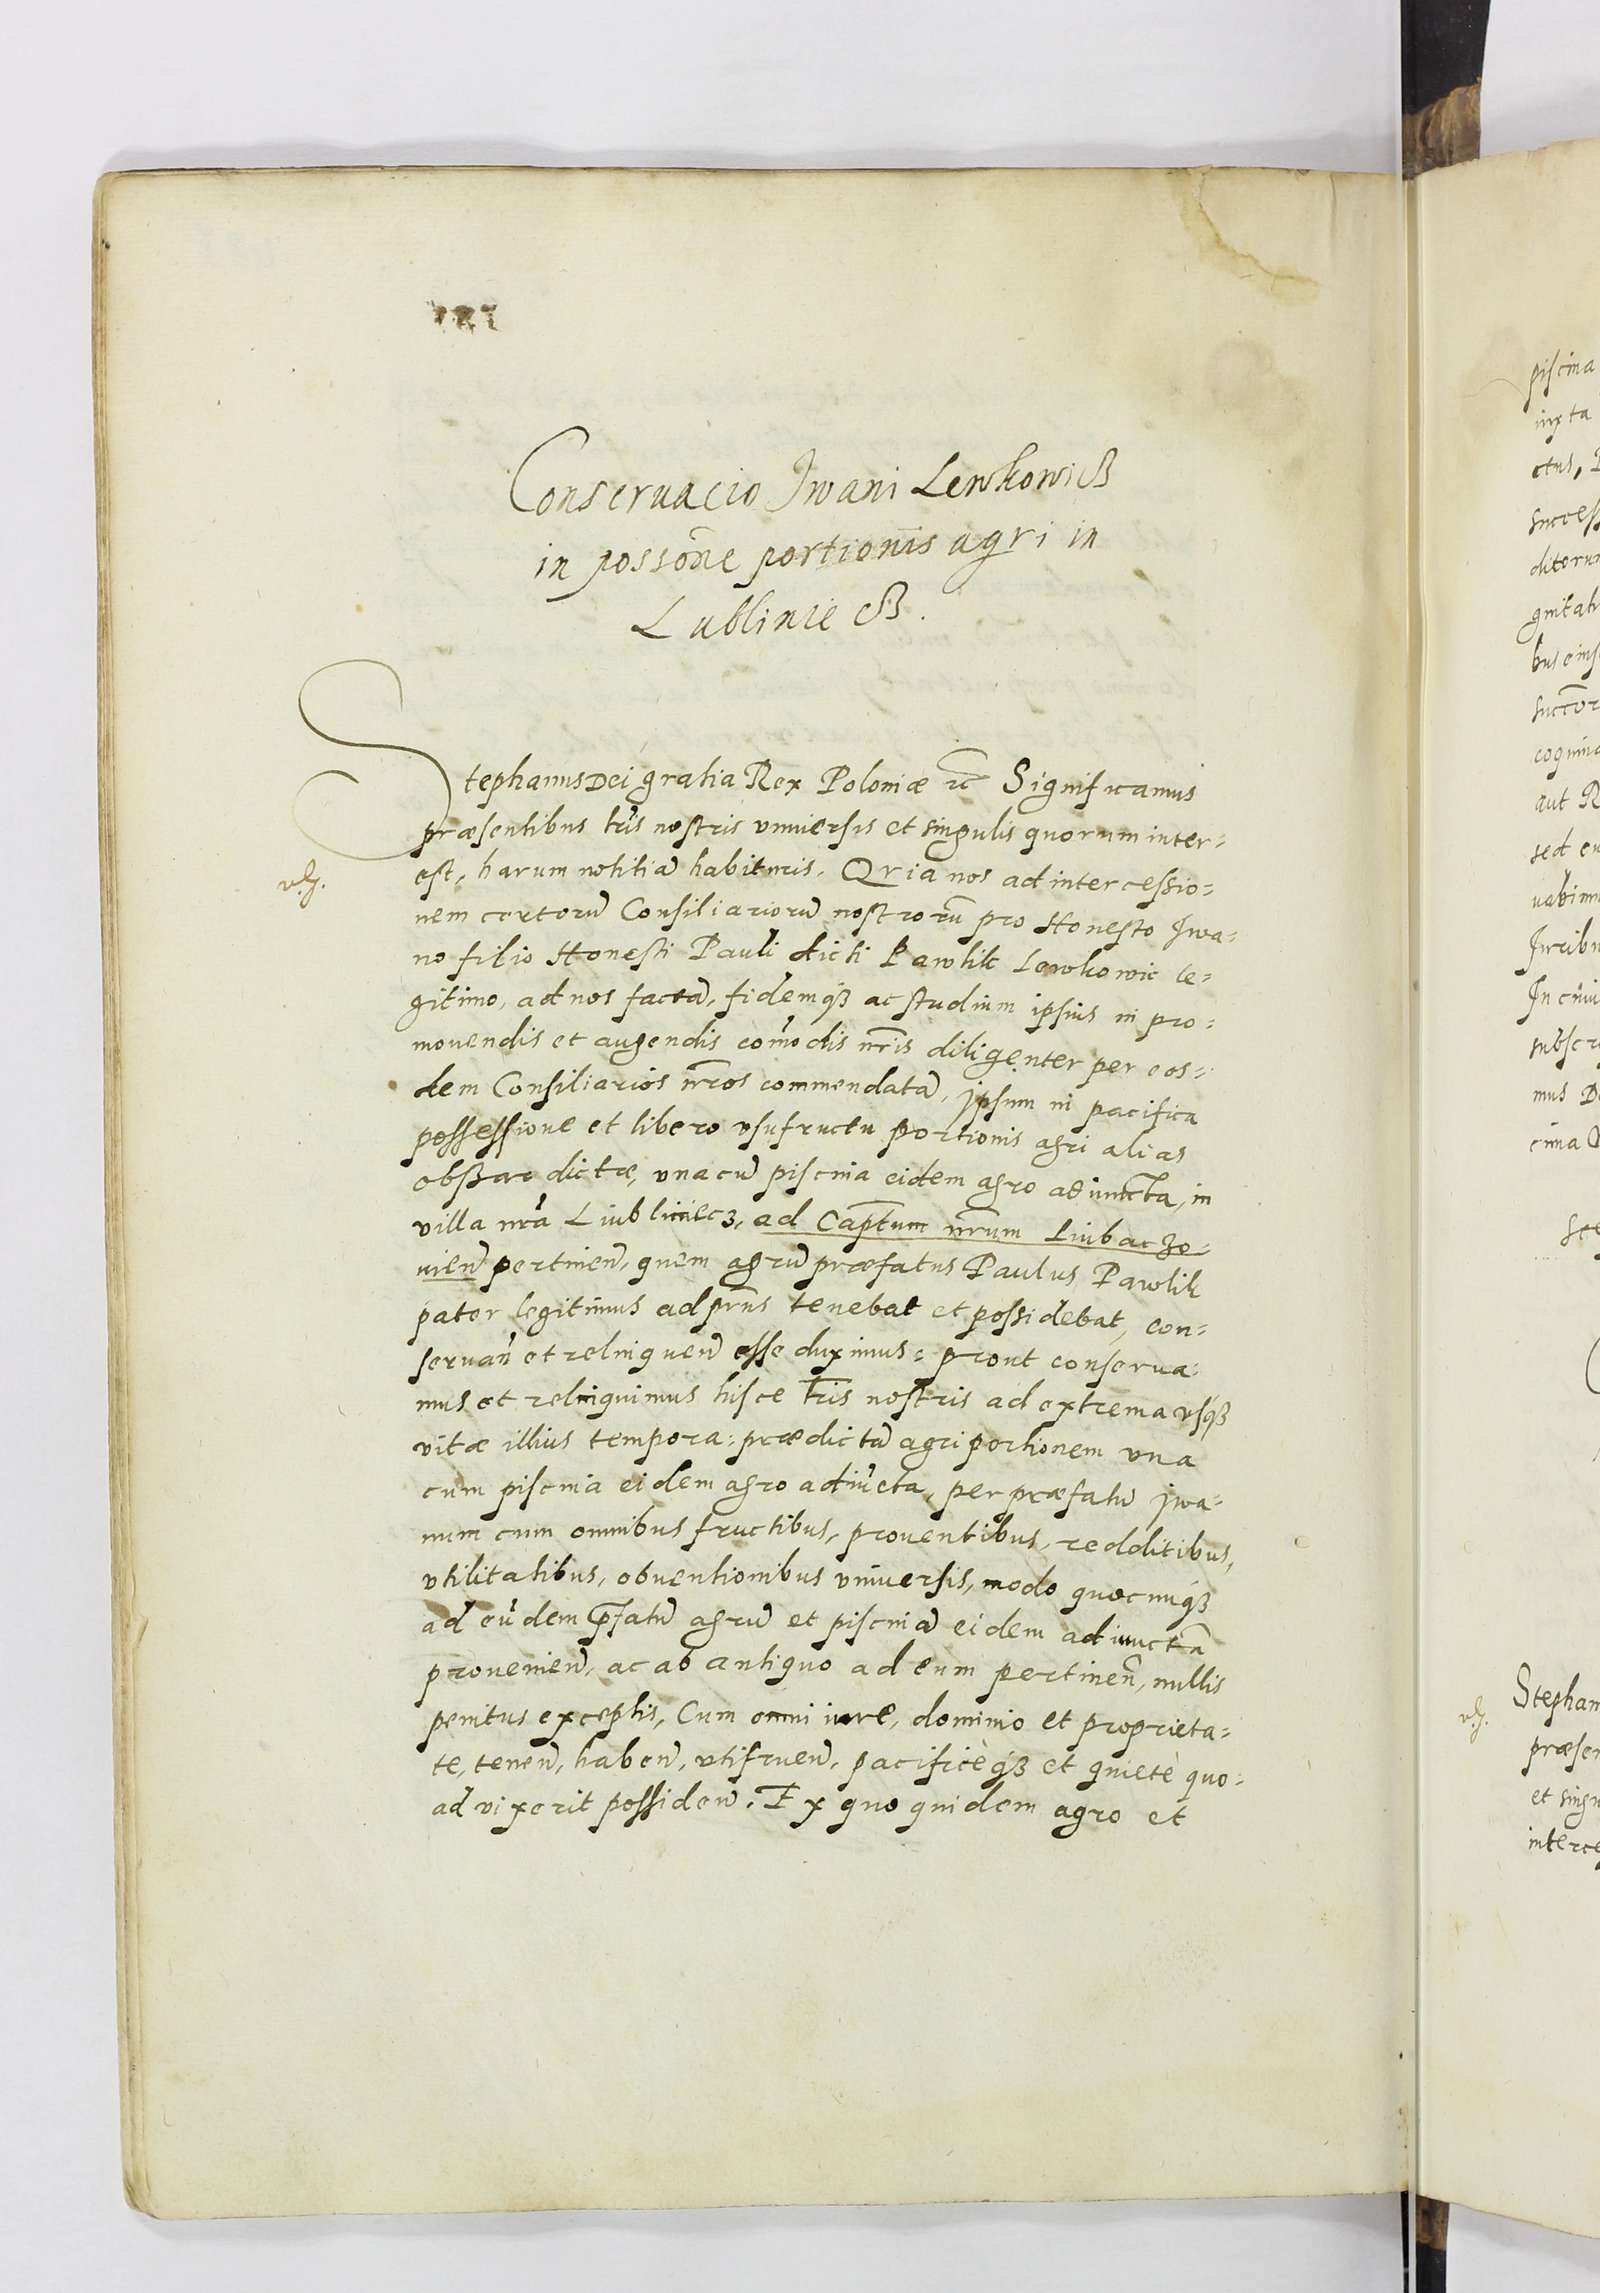 Conseruacio Iwani Lewkowicz
in possone portionis agri in
Lubliniecz.
Stephanus Dei gratia Rex Poloniæ rc Significamus
præsentibus lris nostris vniuersis et singulis quorum inter=
est, harum notitia habituris. Quia nos ad intercessio=
nem certoru Consiliarioru nostroru pro Honesto Iwa=
no filio Honesti Pauli dicti Pawlik Lewkowic le=
gitimo, ad nos facta, fidemqz ac studium ipsius in pro=
mouendis et augendis comodis nris diligenter per eos=
dem Consiliarios nros commendata, ipsum in pacifica
possessione et libero vsufructu portionis agri alias
obszar dictæ, vna cu piscina eidem agro adiuncta, in
villa nra Liubliniecz, ad Captum nrum Liubaczo=
uien pertinen, quem agru præfatus Paulus Pawlik
pater legitimus ad prns tenebat et possidebat, con=
seruan et relinquen esse duximus: prout conserua=
mus et relinquimus hisce lris nostris ad extrema vsqz
vitæ illius tempora: prædicta agri portionem vna
cum piscina eidem agro adiucta, per præfatu Iwa=
num cum omnibus fructibus, prouentibus, redditibus,
vtilitatibus, obuentionibus vniuersis, modo quocunqz
ad eudem pfatu agru et piscina eidem adiuncta
prouenien, ac ab antiquo ad eum pertinen, nullis
penitus exceptis, Cum omni iure, dominio et proprieta=
te, tenen, haben, vtifruen, pacificèqz et quietè quo=
ad vixerit possiden. Ex quo quidem agro et
piscina
iuxta
ctus,
success
ditorum
gnitat
bus eius
succor
cognina
aut R
sed eu
uabimu
Iuribu
In cuiu
subscr
mus D
cima
Stephan
præsen
et singu
interce